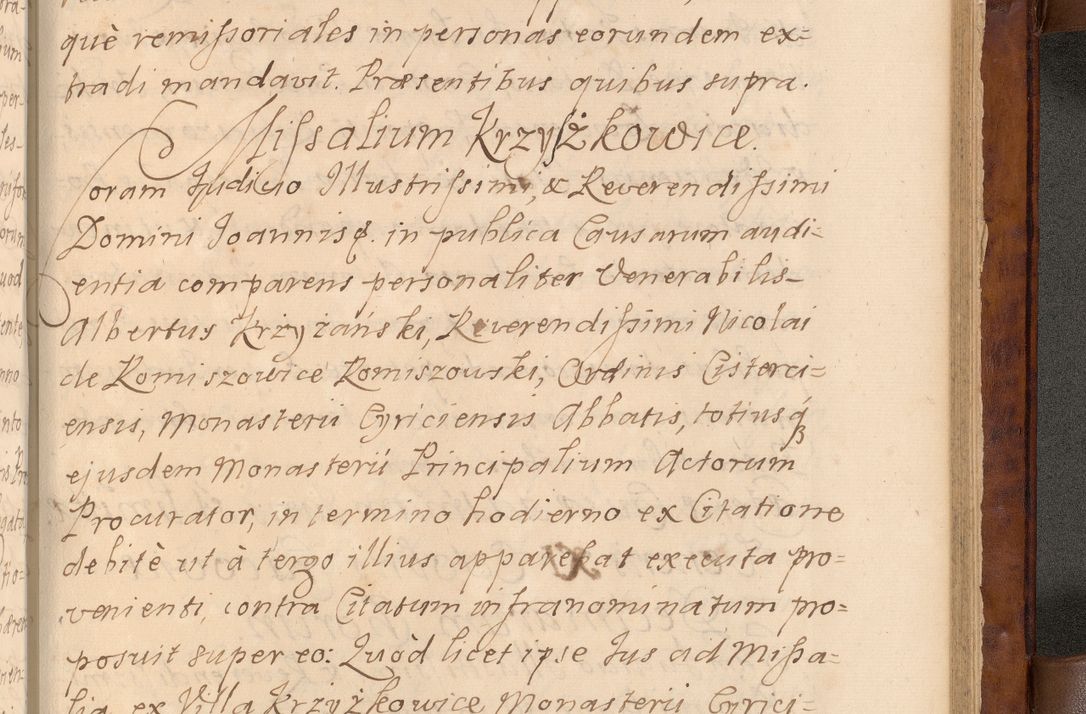 què remissoriales in personas eorundem ex=
tradi mandavit. Præsentibus quibus supra.
Missalium Krzyszkowice.
Coram Judicio Illustrissimi, & Reverendissimi
Domini Joannis &. in publica Causarum audi=
entia comparens personaliter Venerabilis
Albertus Krzyżański, Reverendissimi Nicolai
de Komiszowice Komiszowski, Ordinis Cisterci=
ensis, Monasterii Cyriciensis Abbatis, totiusq́
ejusdem Monasterii Principalium Actorum
Procurator, in termino hodierno ex Citatione
debitè ut à tergo illius apparebat executa pro=
venienti, contra Citatum infranominatum pro=
posuit super eo: Quòd licet ipse Jus ad Missa=
lia ex Villa Krzyżkowice Monasterii Cyrici=